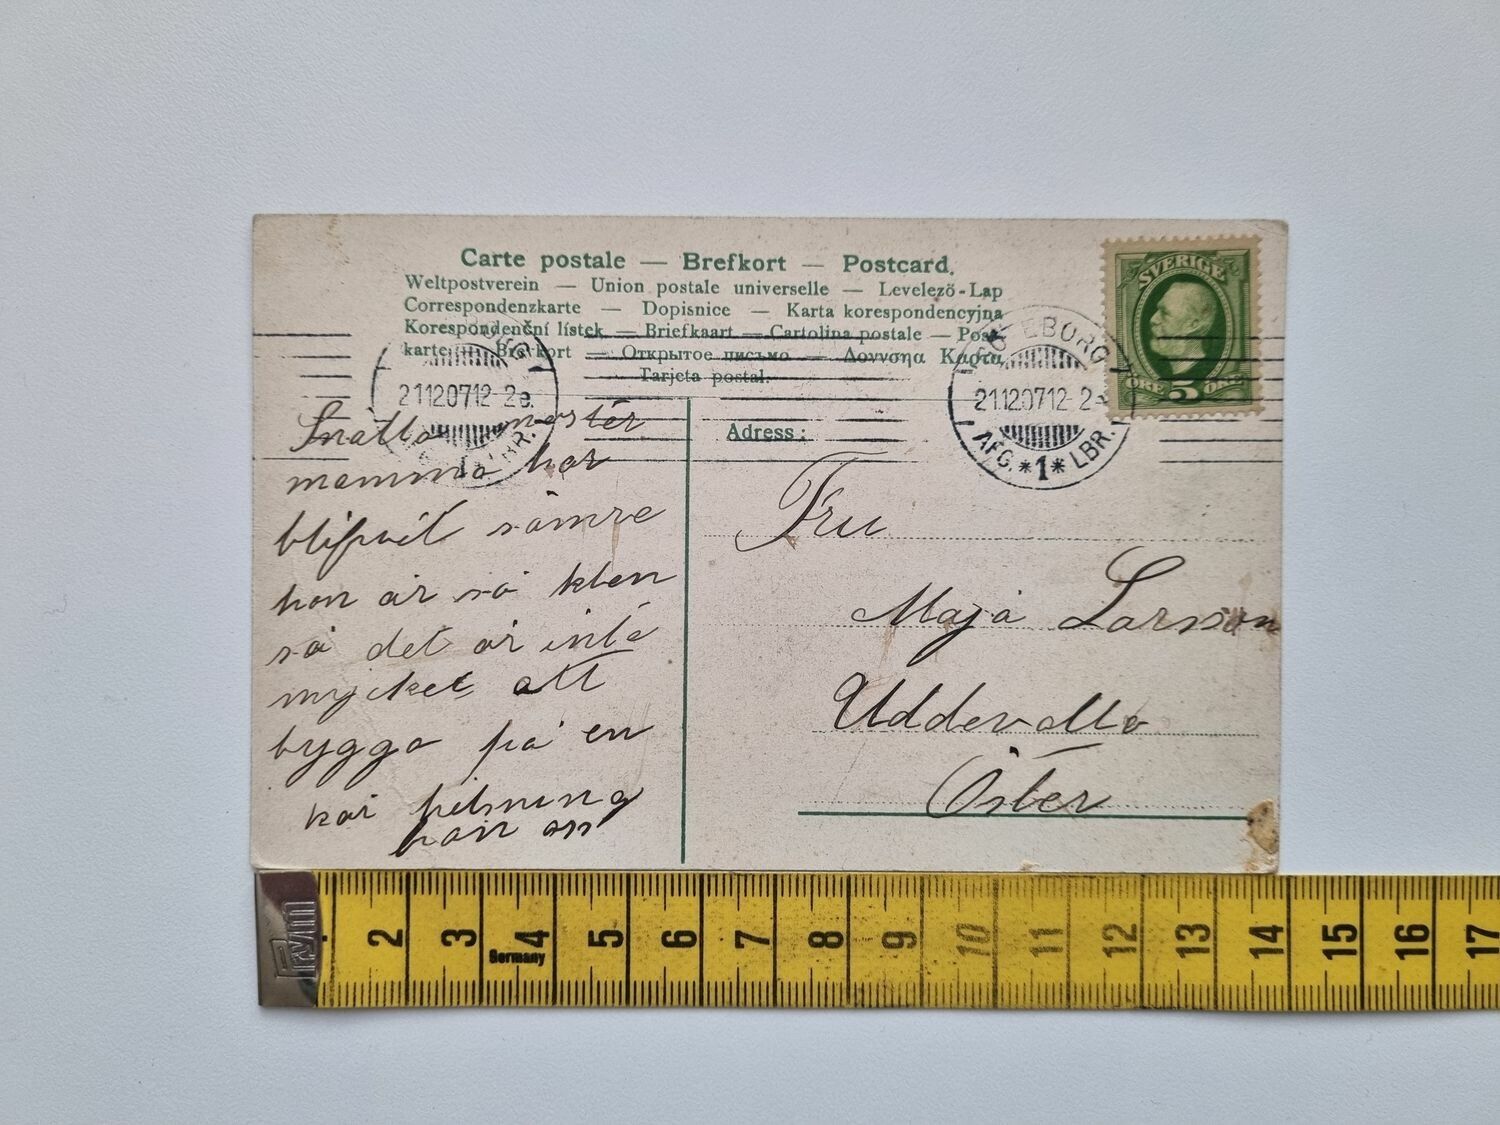 Carte postale — Brefkort — Postcard.
Weltpostverein — Union postale universelle — Levelező-Lap
Correspondenzkarte — Dopisnice — Karta korespondencyjna
Korespondenční lístek — Briefkaart — Cartolina postale — Post-
karte — Brevkort — Открытое письмо — Δουνσηα Καρτα
Tarjeta postal.
SVERIGE
ÖRE 5 ÖRE
GÖTEBORG 1
21.12.07 12-2e
AFG. *1* LBR.
21 12 07 12-2e.
LBR.
Snälla moster
mamma har
blifvit sämre
hon är så klen
så det är inte
mycket att
bygga på en
kär helsning
från oss
Adress:
Fru
Maja Larsson
Uddevalla
Öster
PRYM
2 3 4 5 6 7 8 9 10 11 12 13 14 15 16 17
Germany